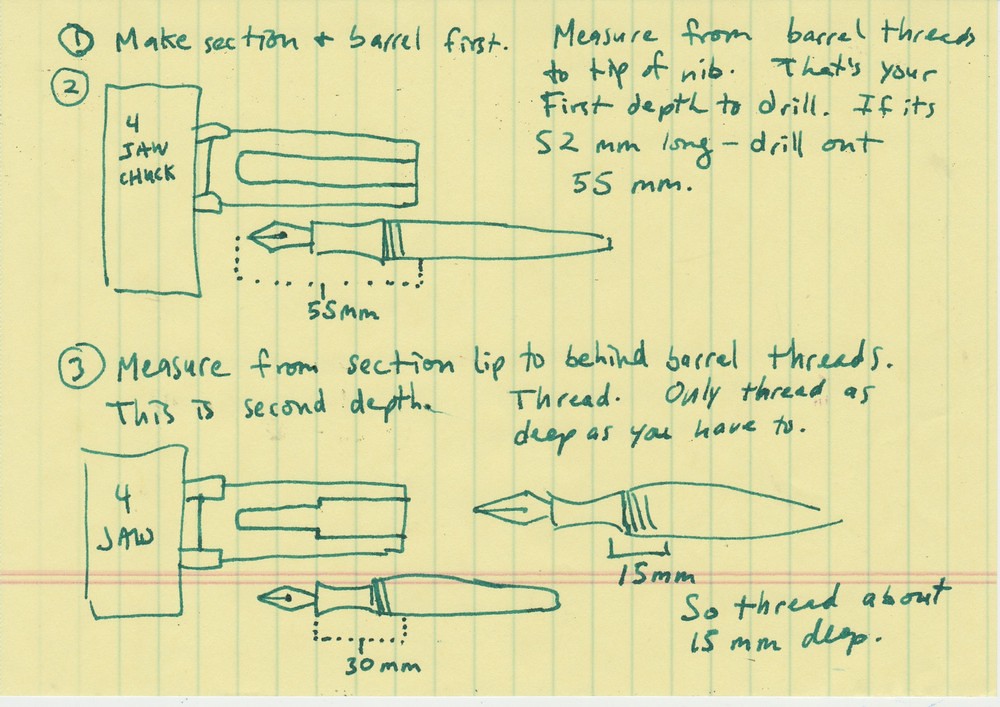 ① Make section + barrel first.
Measure from barrel threads
to tip of nib. That's your
First depth to drill. If its
52 mm long - drill out
55 mm.
②
4
JAW
CHUCK
55mm
③ Measure from section lip to behind barrel threads.
This is second depth.
Thread. Only thread as
deep as you have to.
4
JAW
15mm
30mm
So thread about
15 mm deep.